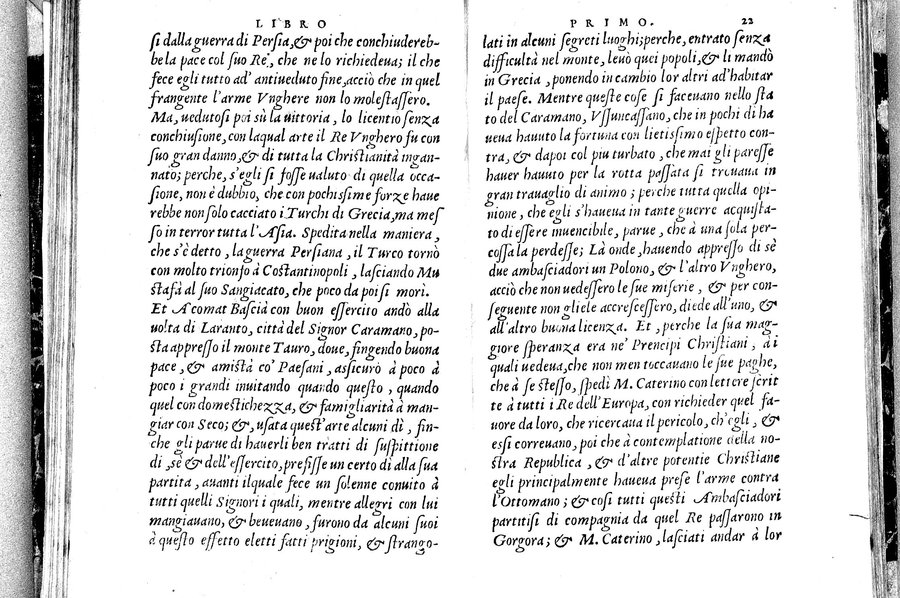 LIBRO
si dalla guerra di Persia, & poi che conchiudereb-
be la pace col suo Re, che ne lo richiedeua; il che
fece egli tutto ad' antiueduto fine, acciò che in quel
frangente l'arme Vnghere non lo molestassero.
Ma, uedutosi poi sù la uittoria, lo licentio senza
conchiusione, con laqual arte il Re Vnghero fu con
suo gran danno, & di tutta la Christianità ingan-
nato; perche, s'egli si fosse ualuto di quella occa-
sione, non è dubbio, che con pochissime forze haue
rebbe non solo cacciato i Turchi di Grecia, ma mes
so in terror tutta l'Asia. Spedita nella maniera,
che s'è detto, la guerra Persiana, il Turco tornò
con molto trionfo à Costantinopoli, lasciando Mu
stafà al suo Sangiacato, che poco da poi si morì.
Et Acomat Bascià con buon essercito andò alla
uolta di Laranto, città del Signor Caramano, po-
sta appresso il monte Tauro, doue, fingendo buona
pace, & amistà co' Paesani, assicurò à poco à
poco i grandi inuitando quando questo, quando
quel con domestichezza, & famigliarità à man-
giar con Seco; &, usata quest'arte alcuni dì, fin-
che gli parue di hauerli ben tratti di suspittione
di, sè & dell'essercito, prefisse un certo dì alla sua
partita, auanti ilquale fece un solenne conuito à
tutti quelli Signori i quali, mentre allegri con lui
mangiauano, & beueuano, furono da alcuni suoi
à questo effetto eletti fatti prigioni, & strango-
PRIMO. 22
lati in alcuni segreti luoghi; perche, entrato senza
difficultà nel monte, leuò quei popoli, & li mandò
in Grecia, ponendo in cambio lor altri ad'habitar
il paese. Mentre queste cose si faceuano nello sta
to del Caramano, Vssuncassano, che in pochi dì ha
ueua hauuto la fortuna con lietissimo espetto con-
tra, & dapoi col piu turbato, che mai gli paresse
hauer hauuto per la rotta passata si trouaua in
gran trauaglio di animo; perche tutta quella opi-
nione, che egli s'haueua in tante guerre acquista-
to di essere inuencibile, parue, che à una sola per-
cossa la perdesse; Là onde, hauendo appresso di sè
due ambasciadori un Polono, & l'altro Vnghero,
acciò che non uedessero le sue miserie, & per con-
seguente non gliele accrescessero, diede all'uno, &
all'altro buona licenza. Et, perche la sua mag-
giore speranza era ne' Prencipi Christiani, à i
quali uedeua, che non men toccauano le sue paghe,
che à se stesso, spedì M. Caterino con lettere scrit
te à tutti i Re dell'Europa, con richieder quel fa-
uore da loro, che ricercaua il pericolo, ch'egli, &
essi correuano, poi che à contemplatione della no-
stra Republica, & d'altre potentie Christiane
egli principalmente haueua prese l'arme contra
l'Ottomano; & cosi tutti questi Ambasciadori
partitisi di compagnia da quel Re passarono in
Gorgora; & M. Caterino, lasciati andar à lor